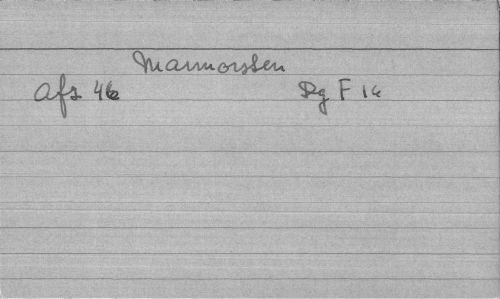 Marmorsten
Afs 46 Rg F 16